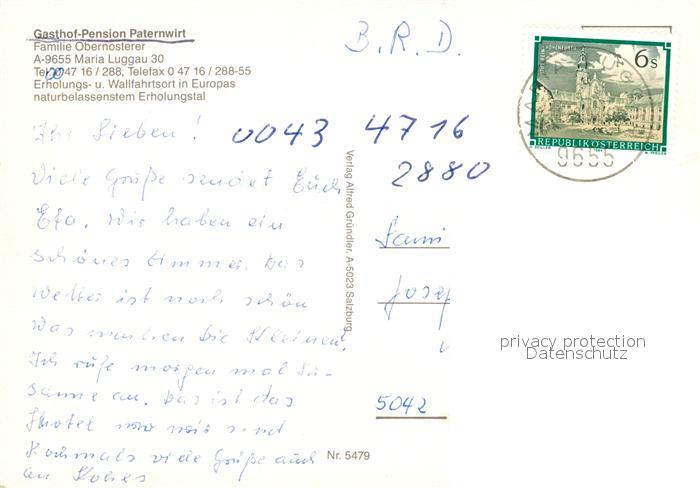 Gasthof-Pension Paternwirt
Familie Obernosterer
A-9655 Maria Luggau 30
Tel. 0 47 16 / 288, Telefax 0 47 16 / 288-55
Erholungs- u. Wallfahrtsort in Europas
naturbelassenstem Erholungstal
B.R.D.
6s
REPUBLIK ÖSTERREICH
9655
Ihr Lieben!
0043 4716
2880
Viele Grüße sendet Euch
Efa. Wir haben ein
schönes Zimmer. Das
Wetter ist noch schön
Was machen die Kleinen?
Ich rufe morgen mal Su-
sanne an. Das ist das
Hotel wo wir sind
Nochmals viele Grüße auch
an
Verlag Alfred Gründler, A-5023 Salzburg
Nr. 5479
Fami
Josef
5042
privacy protection
Datenschutz